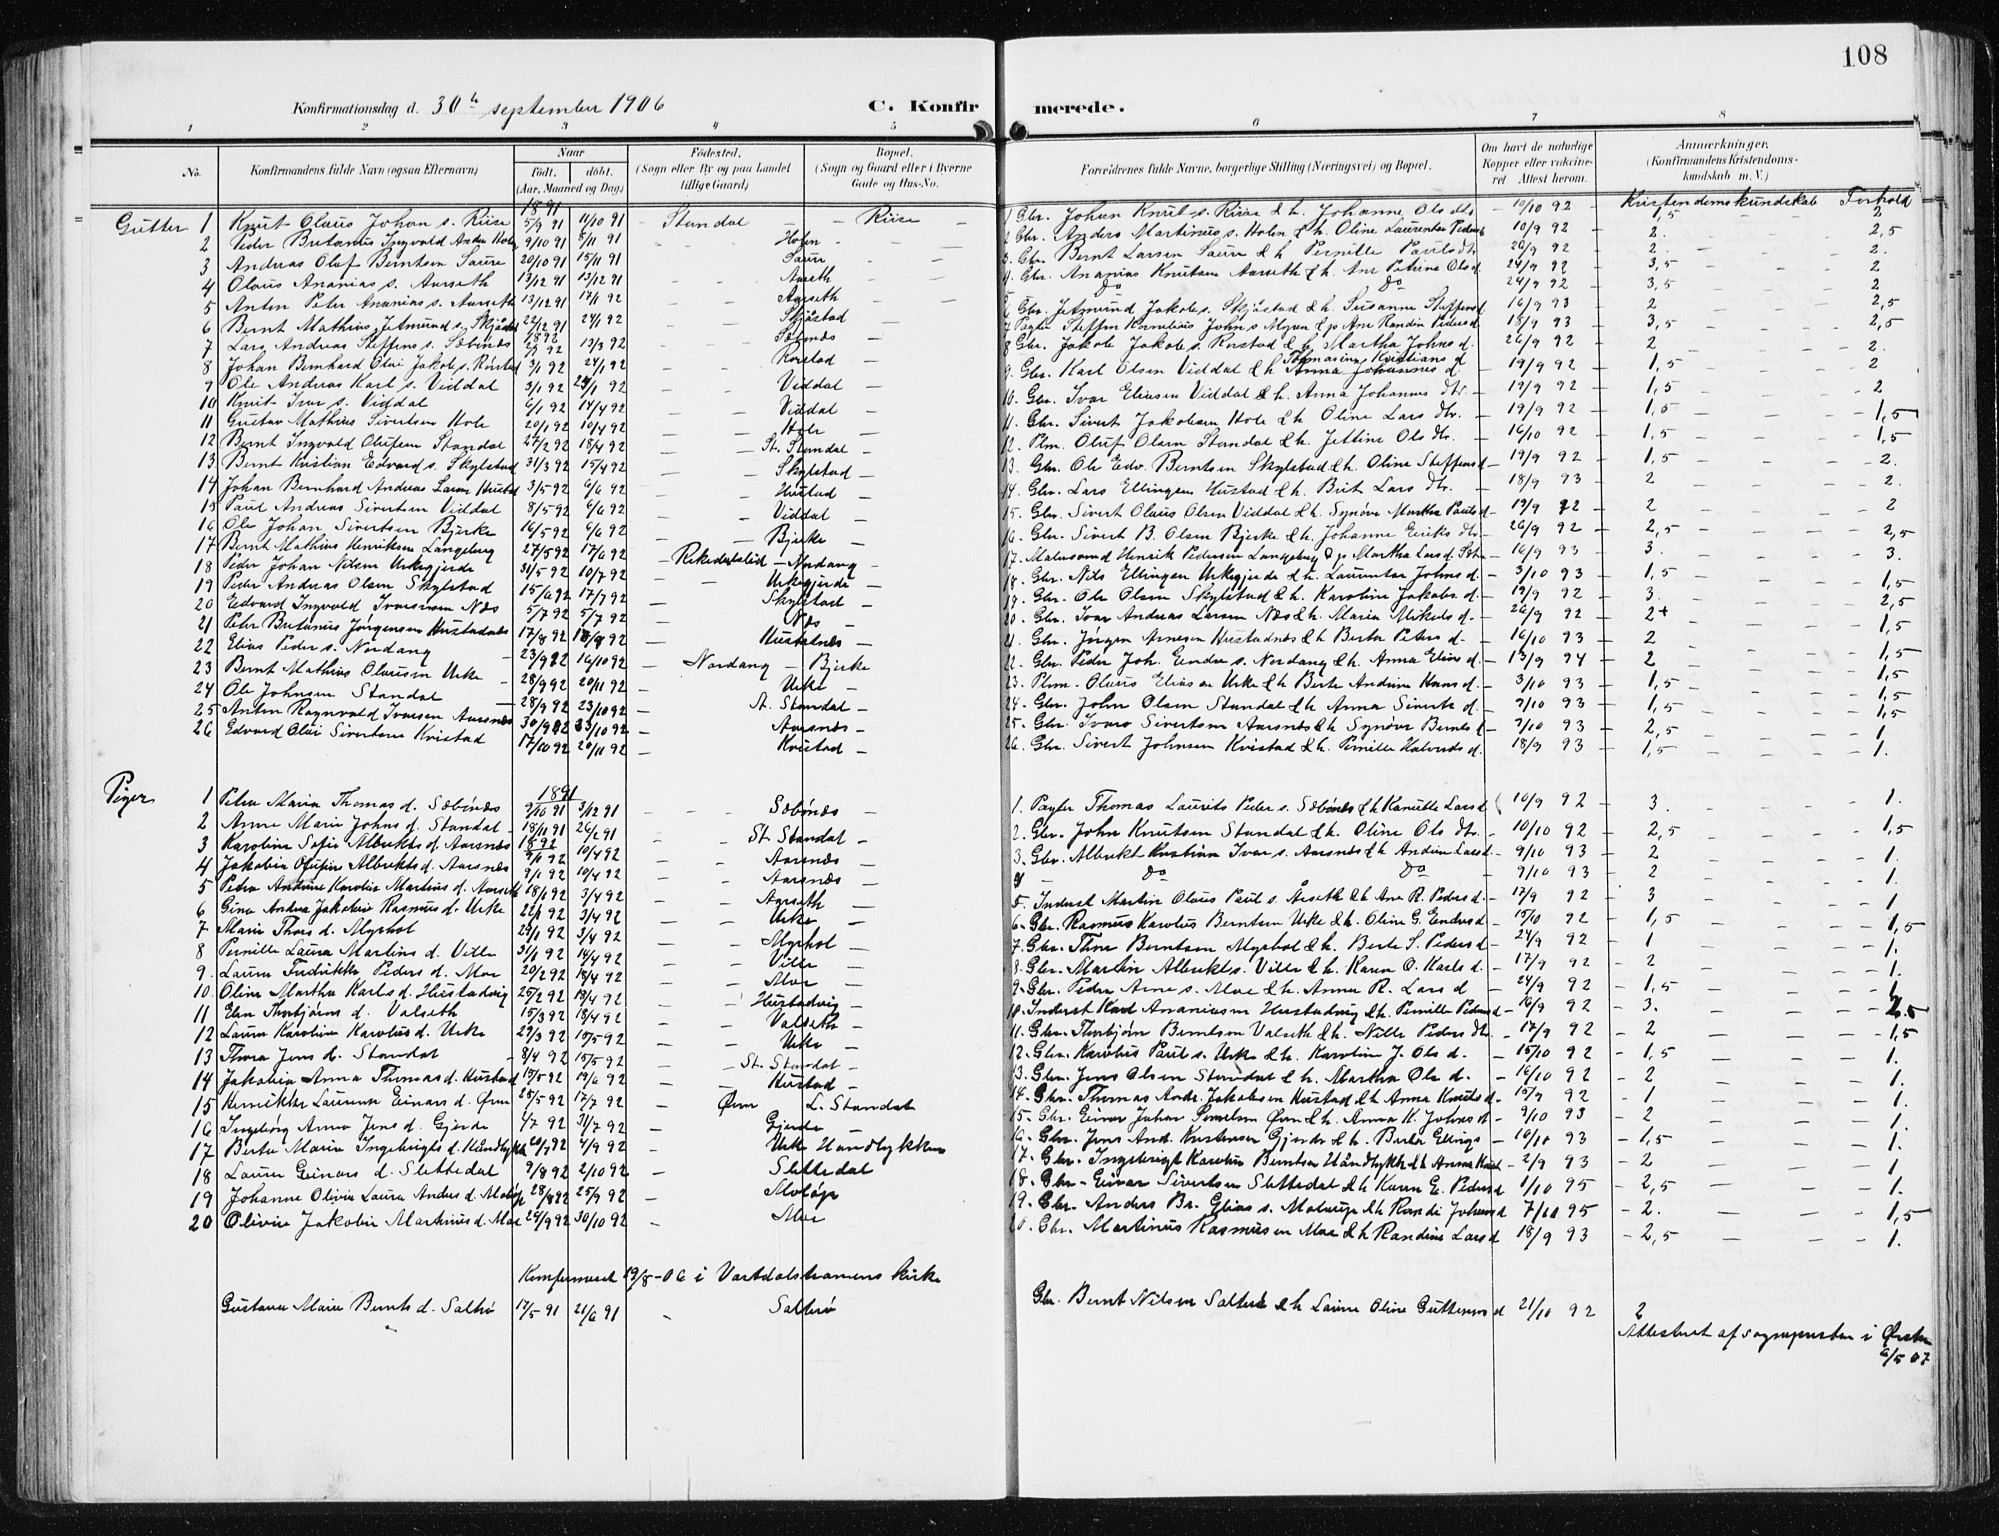 108
Konfirmationsdag d. 30te september 1906 C. Konfirmerede.
1 2 3 4 5 6 7 8
No. Konfirmandens fulde Navn (ogsaa Efternavn) Naar født. døbt. (Aar, Maaned og Dag) Fødested. (Sogn eller By og paa Landet tillige Gaard) Bopæl. (Sogn og Gaard eller i Byerne Gade og Hus-No.) Forældrenes fulde Navne, borgerlige Stilling (Næringsvei) og Bopæl. Om havt de naturlige Kopper eller vakcineret. Attest herom. Anmærkninger. (Konfirmandens Kristendomskundskab m. V.)
1891 Kristendomskundskab Forhold
Gutter 1 Knut Olaus Johan s. Riise 5/9 91 11/10 91 - Standal - - Riise - 1 Gbr. Johan Knut s. Riise & h. Johanne Ols dtr. - 10/10 92 - 1,5 2
2 Peder Bertanus Ingvald Anders Holen 9/10 91 8/11 91 - Holen - 2 Gbr. Anders Martinus s. Holen & h. Oline Laurentse Peders d 10/9 92 - 2. 2,5
3 Andreas Oluf Berntsen Saure 20/10 91 15/11 91 - Saure - 3. Gbr. Bernt Larsen Saure & h Pernille Pauls dtr 26/9 92 - 2 2.
4 Olaus Ananias s. Aarseth 13/12 91 13/12 91 - Aarseth - 4 Gbr. Ananias Knutsen Aarseth & h. Ane Petrine Ols d. 24/9 92 - 3,5 2
5 Anton Peter Ananias s. Aarseth 13/12 91 17/1 92 - Aarseth - 5 do do 24/9 92 3,5 2
6 Bernt Mathias Jetmund s. Skjåstad 22/12 91 24/1 92 - Skjåstad 6 Gbr. Jetmund Jakobs s. Skjåstad & h. Susanne Steffens d 16/9 93 - 2 2,5
1892
7 Lars Andreas Steffens s. Sæbønes 2/1 92 13/3 92 - Sæbønæs 7 Pagter Steffen Kornelius John s Myren & p Ane Randin Peders d 18/9 93 - 3,5 2,5
8 Johan Bernhard Olai Jakob s. Rørstad 3/1 92 24/1 92 - Rørstad 8 Gbr. Jakob Jakob s. Rørstad & h. Martha Johns d. - 26/9 92 - 2 2.
Thomasine Kristians d
9 Ole Andreas Karl s. Viddal 3/1 92 25/1 92 - Viddal - 9. Gbr. Karl Olsen Viddal & h Anna Johannes d - 19/9 92 - 1,5 2
10 Knut Ivar s. Viddal 6/1 92 14/4 92 - Viddal - 10. Gbr. Ivar Eliasen Viddal & h. Anna Johannes dtr. - 19/9 92 - 1,5 2
11 Gustav Mathias Sivertsen Hole 20/1 92 10/4 92 - Hole - 11. Gbr. Sivert Jakobsen Hole & h Oline Lars dtr. - 19/9 92 - 1,5 1,5
12 Bernt Ingvald Olufsen Standal 27/2 92 18/4 92 - St. Standal - 12. Plm. Oluf Olsen Standal & h. Jettine Ols dtr. - 16/10 92 - 1,5 1,5
13 Bernt Kristian Edvard s. Skylstad 31/3 92 15/4 92 - Skylstad - 13. Gbr. Ole Edv. Berntsen Skylstad & h. Oline Steffens d - 19/9 92 - 1,5 2.
14 Johan Bernhard Andreas Larsen Hustad 3/5 92 6/6 92 - Hustad - 14. Gbr. Lars Ellingsen Hustad & h. Brit Lars dtr. - 18/9 93 - 2 2.
15 Paul Andreas Sivertsen Viddal 8/5 92 6/6 92 - Viddal - 15. Gbr. Sivert Olaus Olsen Viddal & h. Synøve Marthe Pauls d - 19/9 92 - 2 2
16 Ole Johan Sivertsen Bjerke 16/5 92 6/6 92 - Bjerke - 16. Gbr. Sivert B. Olsen Bjerke & h. Johanne Eriks dtr - 26/9 92 - 2,5 2,5
17 Bernt Mathias Henriksen Langeberg 27/5 92 17/6 92 - Rekedalslid - Nordang - 17. Henrik Pedersen Langeberg & p Martha Lars d. - 16/9 93 - 3. 3.
18 Peder Johan Nilsen Urkegjerde 31/5 92 10/7 92 - Urkegjerde - 18. Gbr. Nils Ellingsen Urkegjerde & h. Laurentse Johns d. - 3/10 93 - 1,5 1,5
19 Peder Andreas Olsen Skylstad 15/6 92 17/7 92 - Skylstad - 19. Gbr. Ole Olsen Skylstad & h. Karoline Jakobs d - 19/9 92 - 3. 2,5
20 Edvard Ingvald Ivarsen Næs 5/7 92 5/7 92 - Næs - 20. Gbr. Ivar Andreas Larsen Næs & h. Maria Mikals d - 26/9 92 - 2+ 1,5
21 Peter Bertanius Jørgensen Hustadnæs 17/8 92 18/9 92 - Hustadnæs - 21. Gbr. Jørgen Arnesen Hustadnes & h Berte Peters d. - 16/10 93 - 2 1,5
22 Elias Peder s. Nordang 23/9 92 16/10 92 - Nordang - Bjerke 22. Gbr. Peder Joh. Eendre s. Nordang & h. Anna Elias d. - 13/9 94 - 2 1,5
23 Bernt Mathias Olausen Urke - 28/9 92 20/11 92 - Urke - 23. Plm. Olaus Eliasen Urke & h Berte Andrine Hans d. - 3/10 93 - 1,5 1,5
24 Ole Johnsen Standal - 28/9 92 23/10 92 - St. Standal - 24. Gbr. John Olsen Standal & h Anna Siverts d. - 9/10 93 - 1,5 1,5
25 Anton Ragnvald Ivarsen Aarsnæs 30/9 92 23/10 92 - Aarsnæs - 25. Gbr. Ivar Sivertsen Aarsnæs & h Synøve Bernts d. - 9/10 93 - 2,5 1
26 Edvard Olai Sivertsen Kvistad 17/10 92 20/11 92 - Kvistad - 26. Gbr. Sivert Johnsen Kvistad & h. Pernille Halvards d. - 18/9 93 - 1,5 1.
Piger 1891
1 Petra Marie Thomas d. Sæbønæs 9/10 91 3/12 91 - Sæbønæs - 1. Pagter Thomas Laurits Peder s. Sæbønæs & h Kanutte Lars d 16/9 92 - 3. 1.
2 Anne Marie Johns d. Standal - 18/11 91 26/2 91 - St. Standal - 2. Gbr. John Knutsen Standal & h. Oline Ols dtr. - 10/10 92 - 2,5 1,5
1892
3 Karoline Sofie Albrikts d. Aarsnæs 9/1 92 10/4 92 - Aarsnæs - 3. Gbr. Albrikt Kristian Ivar s. Aarsnæs & h Andrine Lars d. - 9/10 93 - 2 1.
4 Jakobia Olufine Albrikts d. Aarsnæs 9/1 92 10/4 92 - Aarsnæs - 4 - do do - 9/10 93 - 2 1.
5 Petra Andrine Karolia Martins d. Aarseth 18/1 92 3/4 92 - Aarseth - 5. Inderst Martin Olaus Paul s. Årseth & h Ane R. Peders d. - 17/9 92 - 3 1
6 Gina Andrea Jakobia Rasmus d. Urke 22/1 92 3/4 92 - Urke - 6. Gbr. Rasmus Karolus Berntsen Urke & h. Oline G. Eendres d - 15/10 92 - 1,5 1,5
7 Marie Thors d. Myrhol 25/1 92 3/4 92 - Myrhol - 7. Gbr. Thor Berntsen Myrhol & h. Berte S. Peders d - 24/9 92 - 1 1.
8 Pernille Laura Martins d. Ville 31/1 92 14/4 92 - Ville - 8. Gbr. Martin Albrikts. Ville & h. Karen O. Karls d. - 17/9 92 - 2 1.
9. Laura Fredrikke Peders d. Moe 20/2 92 18/4 92 - Moe - 9. Gbr. Peder Arne s. Moe & h. Anna R. Lars d - 24/9 92 - 1,5 1
10. Oline Martha Karls d. Hustadvig 25/2 92 18/4 92 - Hustadvig - 10. Inderst Karl Ananiasen Hustadvig & h. Pernille Peders d 16/9 92 - 3. 2.5
11 Elen Thorbjørns d. Valseth 15/3 92 18/4 92 - Valseth - 11. Gbr. Thorbjørn Berntsen Valseth & h. Nille Peders dtr. - 17/9 92 - 2 1,5
12 Laura Karoline Karolus d. Urke 29/3 92 15/5 92 - Urke - 12. Gbr. Karolus Paul s. Urke & h. Karoline J. Ols d. - 15/10 92 - 1,5 1.
13 Thora Jens d. Standal 8/4 92 15/5 92 - St. Standal - 13. Gbr. Jens Olsen Standal & h. Martha Ole d. - 16/10 92 - 2 1.
14 Jakobia Anna Thomas d. Hustad 15/5 92 19/6 92 - Hustad - 14. Gbr. Thomas Andr. Jakobsen Hustad & h Anna Knuts d - 15/9 92 - 1 1.
15 Henrikke Laurense Einars d. Øvre 25/5 92 17/7 92 - Øvre L. Standal 15. Gbr. Einar Johan Øvre & h. Anna K. Johns d - 9/10 93 - 2 1.
16 Ingebørg Anna Jens d. Gjerde 4/7 92 31/7 92 - Gjerde - 16. Gbr. Jens And. Kristensen Gjerde & h. Berte Ellings - 16/10 93 - 1,5 1.
17 Berte Marie Ingebrigts d. Håndlykk 20/7 92 4/9 92 - Urke Haandlykken 17. Gbr. Ingebrigt Karolus Berntsen Håndlykk & h Anna Knut - 2/9 93 - 2 1.
18 Laura Einars d. Slettedal 9/8 92 2/10 92 - Slettedal 18. Gbr. Einar Sivertsen Slettedal & h Karen E. Peders d 1/10 95 - 2,5 1.
19 Johanne Olivia Laura Anders d. Moløje 28/8 92 25/9 92 - Moløje 19. Gbr. Anders Br. Elias s. Moløje & h Randi Johans d 7/10 95 - 2. 1,5
20 Olivie Jakobie Martinus d. Moe 24/9 92 30/10 92 - Moe 20. Gbr. Martinus Rasmusen Moe & h Randine Lars d 18/9 93 - 2,5 1.
Konfirmeret 19/8-06 i Vartdalstranens kirke
Gustava Marie Bernts d. Saltrø 17/5 91 21/6 91 - Saltrø Gbr. Bernt Nilsen Saltrø & h Laura Oline Guttorms d 21/10 92 2
Attesteret af sognepresten i Ørsten
6/5 07